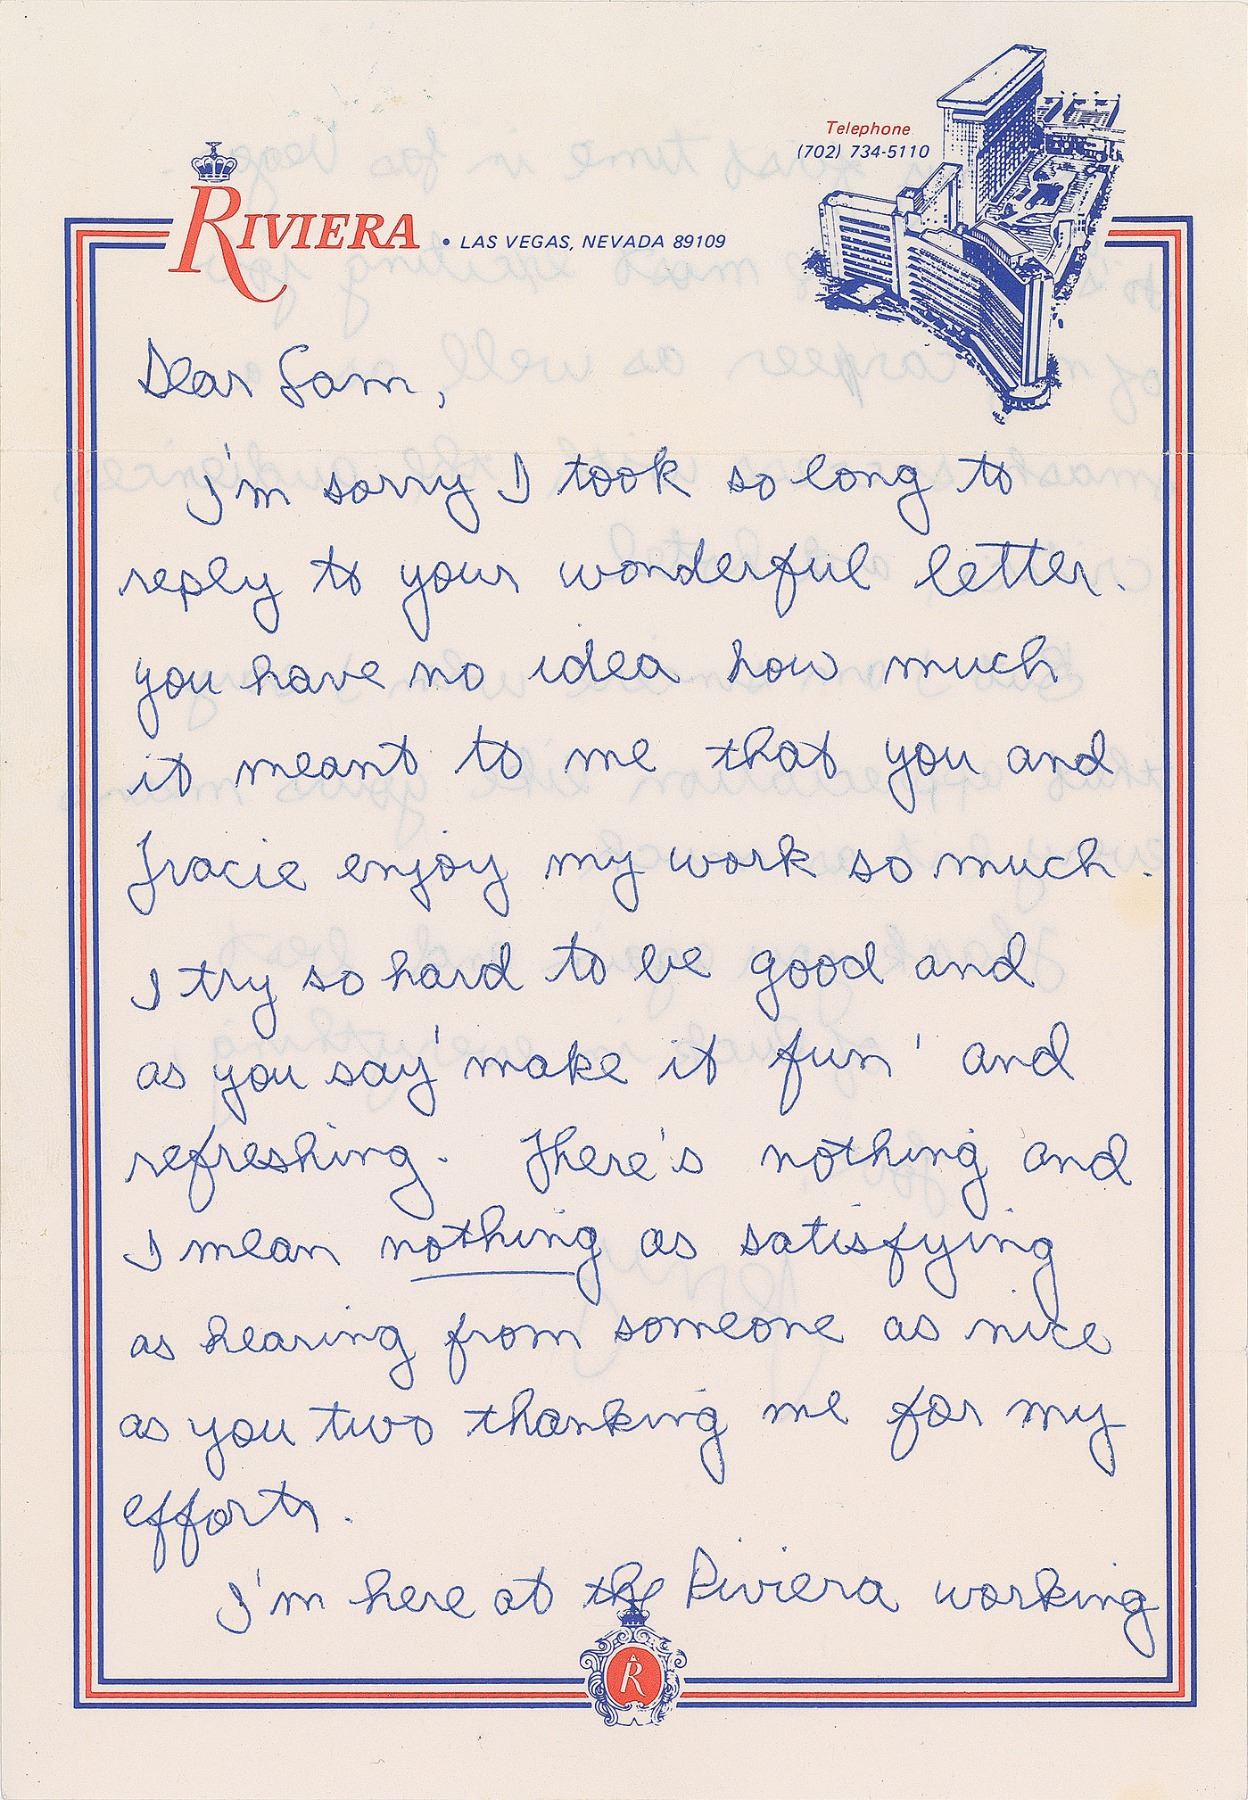 Telephone
(702) 734-5110
RIVIERA • LAS VEGAS, NEVADA 89109
Dear Sam,
I'm sorry I took so long to
reply to your wonderful letter.
you have no idea how much
it meant to me that you and
Tracie enjoy my work so much.
I try so hard to be good and
as you say 'make it fun' and
refreshing. There's nothing and
I mean nothing as satisfying
as hearing from someone as nice
as you two thanking me for my
efforts.
I'm here at the Riviera working
R